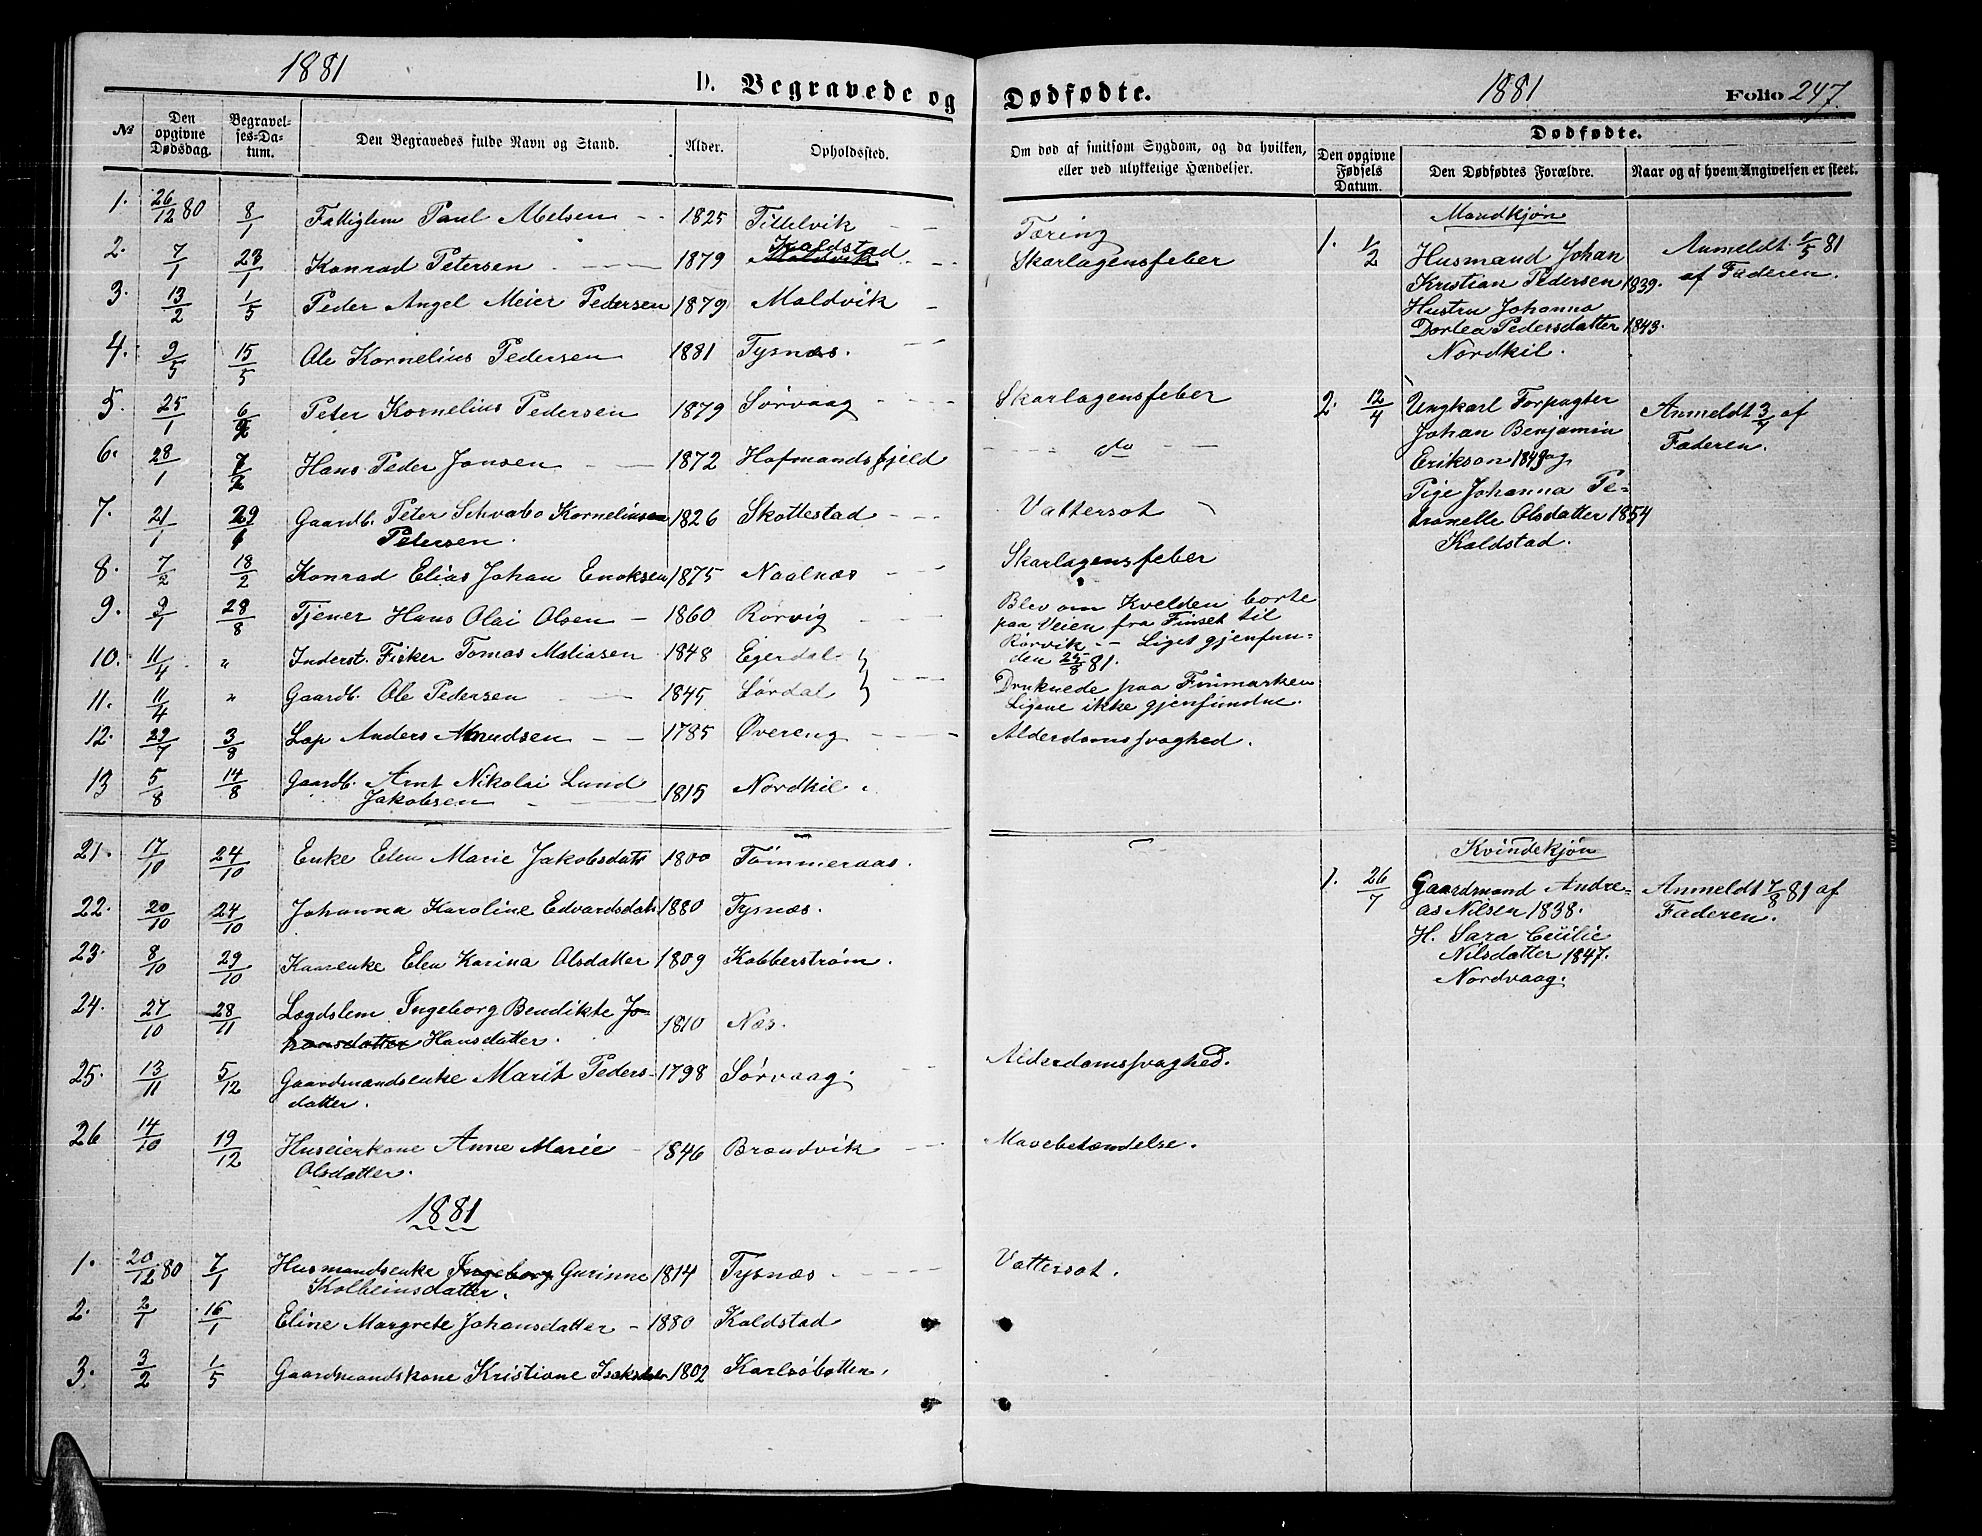 1881
D. Begravede og Dødfødte.
1881
Folio 247
№
Den opgivne Dødsdag.
Begravelses-Datum.
Den Begravedes fulde Navn og Stand.
Alder.
Opholdssted.
Om død af smitsom Sygdom, og da hvilken, eller ved ulykkelige Hændelser.
Dødfødte.
Den opgivne Fødsels Datum.
Den Dødfødtes Forældre.
Naar og af hvem Angivelsen er skeet.
1. 26/12 80 8/1 Fattiglem Paul Abelsen 1825 Tittelvik Tæring
2. 7/1 23/1 Konrad Petersen 1879 Kaldstad Skarlagensfeber
3. 13/2 1/5 Peder Angel Meier Pedersen 1879 Moldvik
4. 9/5 15/5 Ole Kornelius Pedersen 1881 Tysnæs.
5. 25/1 6/2 Peter Kornelius Pedersen 1879 Sørvaag Skarlagensfeber
6. 28/1 7/2 Hans Peder Jonsen 1872 Hofmandsfjeld do
7. 21/1 29/1 Gaardb. Peter Schvabo Korneliussen 1826 Skottestad Vattersot
Petersen.
8. 7/2 18/2 Konrad Elias Johan Enoksen 1875 Naalnæs Skarlagensfeber
9. 9/1 28/8 Tjener Hans Olai Olsen 1860 Rørvig Blev om Kvelden borte
paa Veien fra Finset til
Rørvik - Liget gjenfun-
den 25/8 81.
10. 11/4 " Inderst. Fisker Tomas Matiasen 1848 Egerdal
11. 11/4 " Gaardb. Ole Pedersen 1845 Sørdal Druknede paa Finmarken
Ligene ikke gjenfundne.
12. 29/7 3/8 Lap Anders Knudsen 1785 Øvereng Alderdomssvaghed.
13 5/8 14/8 Gaardb. Arnt Nikolai Lund 1815 Nordkil
Jakobsen
Mandkjøn
1. 1/2 Husmand Johan Anmeldt 1/5 81
Kristian Pedersen 1839. af Faderen.
Hustru Johanna
Dortea Pedersdatter 1843.
Nordkil.
2. 12/4 Ungkarl Forpagter Anmeldt 3/7 af
Johan Benjamin Faderen.
Erikson 1849 og
Pige Johanna Pe-
tronelle Olsdatter 1854
Kaldstad.
21. 17/10 24/10 Enke Elen Marie Jakobsdatt 1800 Tømmeraas.
22. 20/10 24/10 Johanna Karoline Edvardsdatt 1880 Tysnæs.
23. 8/10 29/10 Kaarenke Elen Karina Olsdatter 1809 Kobberstrøm.
24. 27/10 28/11 Lægdslem Ingeborg Bendikte Jo- 1810 Næs.
hansdatter Hansdatter.
25. 13/11 5/12 Gaardmandsenke Marit Peders- 1798 Sørvaag. Alderdomssvaghed.
datter.
26 14/10 19/12 Huseierkone Anne Marie 1846 Brandvik Mavebetændelse.
Olsdatter.
Kvindekjøn
1. 26/7 Gaardmand Andre- Anmeldt 7/8 81 af
as Nilsen 1838. Faderen.
H. Sara Cecilie
Nilsdatter 1847.
Nordvaag.
1881
1. 20/12 80 7/1 Husmandsenke Ingeborg Gurinne 1814 Tysnæs Vattersot.
Kolbeinsdatter.
2. 2/1 16/1 Eline Margrete Johansdatter 1880 Kaldstad
3. 3/2 1/5 Gaardmandskone Kristiane Isaksdatter 1802 Karlsøbotten.